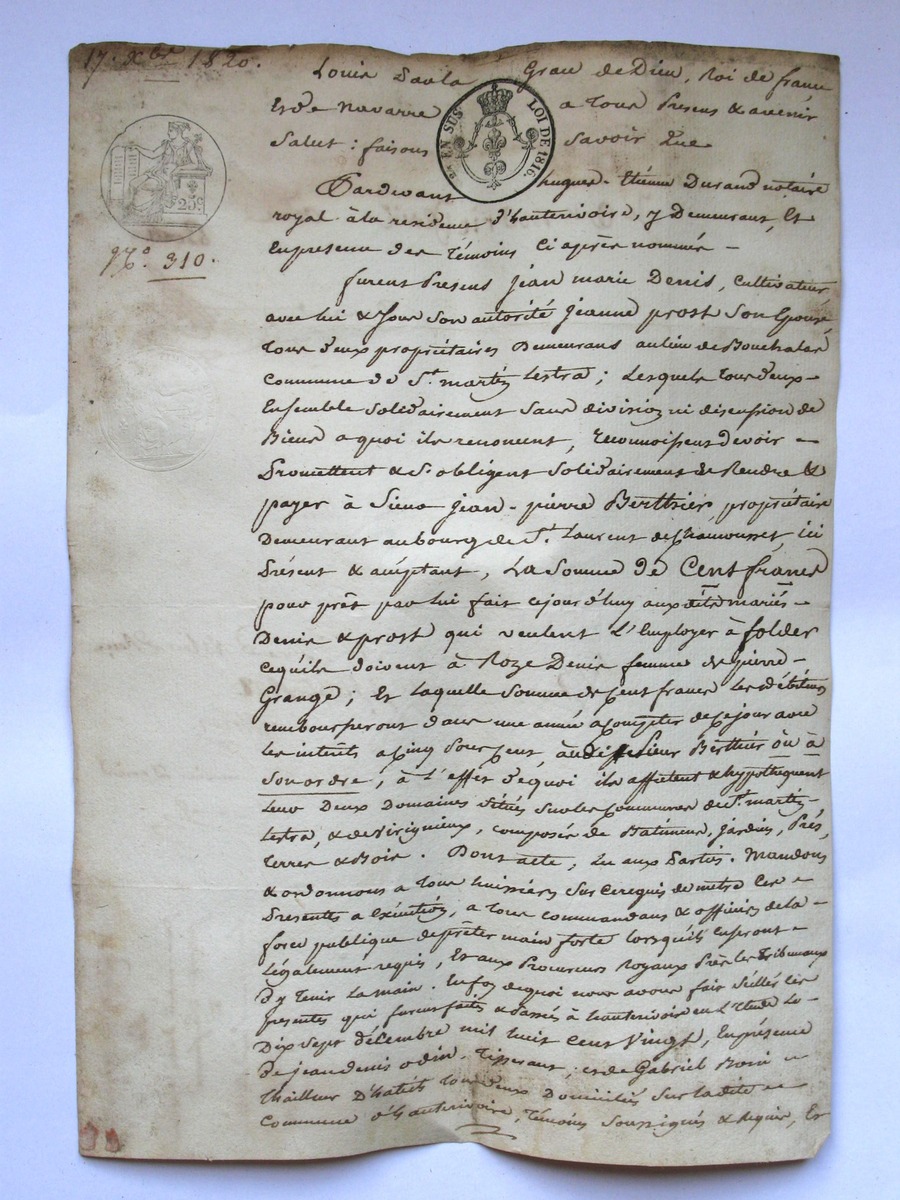 17. Xbre 1820.
Louis Par la Grace de Dieu, Roi de france
Et de Navarre a Tous Presens & avenir
Salut : faisons Savoir Que
EN SUS LOI DE 1816.
25c
No. 310.
Pardevant hugues-Etienne Durand notaire
royal à la residence d'hauterivoire, y Demeurant, Et
En presence des Témoins Ci après nommés –
furent Presens Jean marie Denis, cultivateur
avec lui & Sous Son autorité jeanne prost Son Epouse
Tous deux propriétaires Demeurans au lieu de
Commune de St. martin Lestra ; Lesquels Tous deux –
Ensemble Solidairement Sans division ni discussion de
Biens a quoi ils renoncent, reconnoissent devoir –
Promettent & S'obligent Solidairement de Rendre &
payer à Sieur Jean-pierre Berthier propriétaire
Demeurant au bourg de St. Laurent de Chamousset, ici
Présent & acceptant, La Somme de Cent francs
pour prêt par lui fait cejourd'huy aux dits mariés –
Denis & prost qui veulent L'Employer à solder
cequ'ils doivent à Roze Denis femme de pierre –
Grange ; Et laquelle Somme de Cent francs les débiteurs
rembourseront dans une année a Compter de Ce jour avec
les interets a Cinq Pour Cent, audit Sieur Berthier où à
Son ordre ; à L'effet de quoi ils affectent & hypothequent
Leur Deux Domaines Situés Sur les Communes de St. martin
Lestra, & de Virigneux, composés de Batimens, jardins, Prés,
Terres & Bois. Dont acte, Lu aux Parties. Mandons
& ordonnons a Tous huissiers Sur Ce requis de metre Ces –
Presentes a Exécution, a Tous commandans & officiers de la –
force publique de prêter main forte lorsqu'ils En seront –
Légalement requis, Et aux Procureurs Royaux Près les Tribunaux
D'y Tenir La main. En foy de quoi nous avons fait Seiller les
presentes qui furent faites & Passés à hauterivoire en L'Etude Le –
Dix Sept décembre mil huit Cent Vingt, En présence
de jean denis odin, Tisserant, et de Gabriel
Thailleur D'habits Tous deux Domiciliés Sur la dite –
Commune d'hauterivoire, Témoins Soussignés & Requis, Et